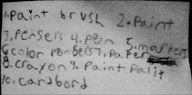 1. Paint brush 2. Paint
3. Pensels 4. Pen 5. markers
6 color Pensels 7. Pafer
8. crayon 9. Paint Palit
10. cardbord